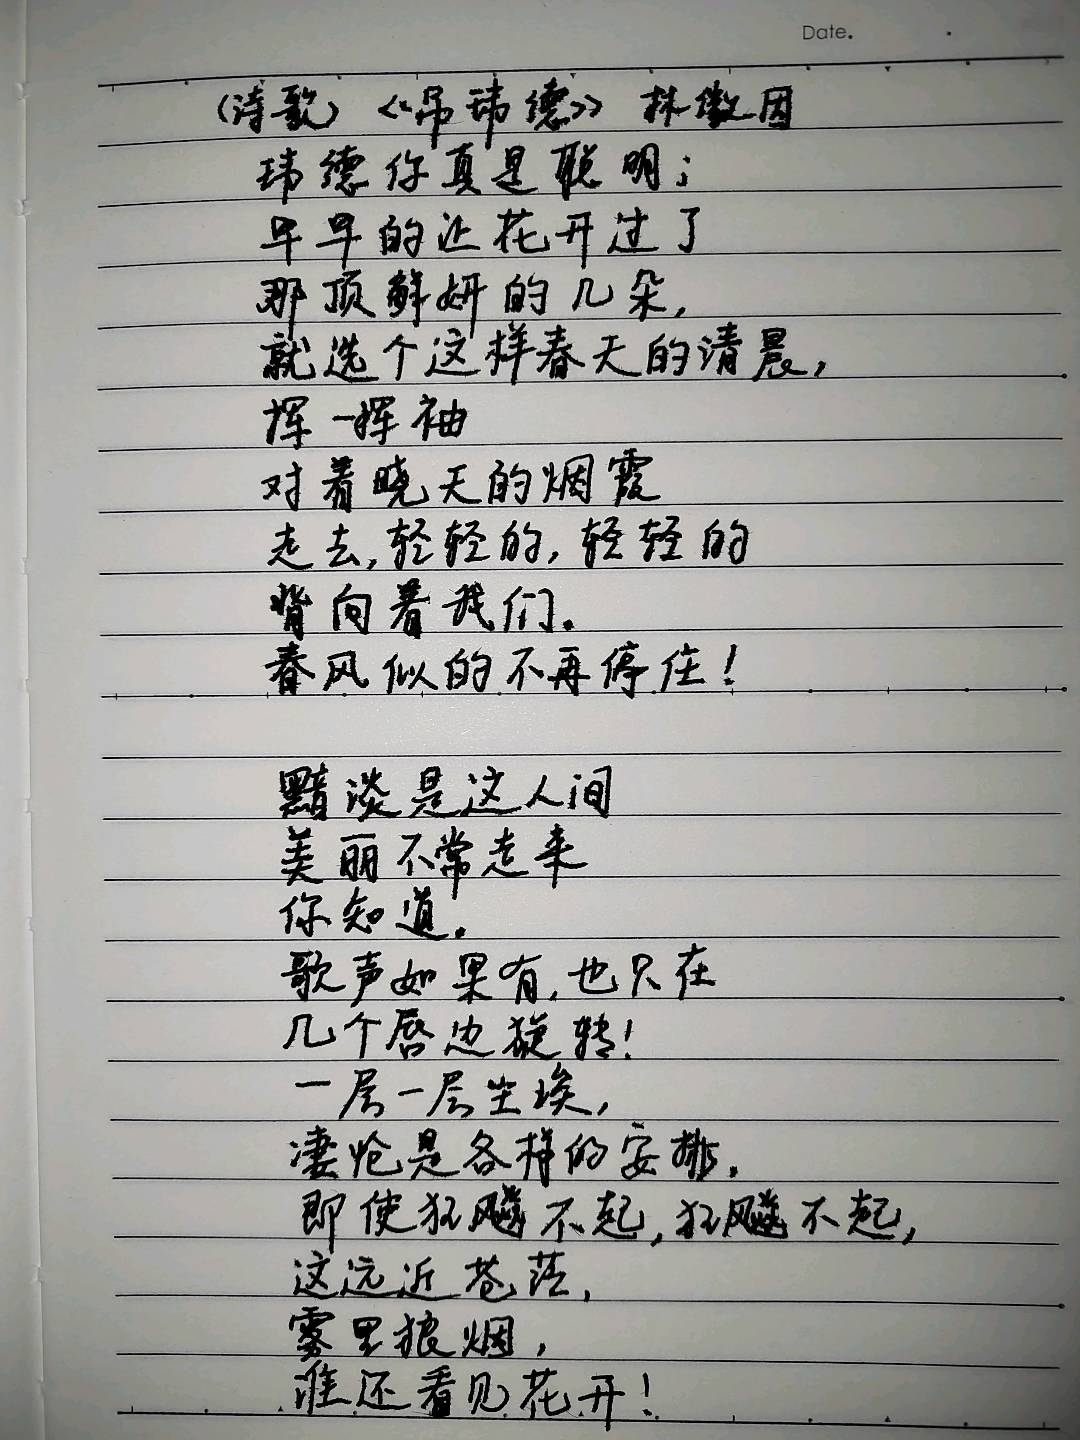 Date.
(诗歌)《吊玮德》 林徽因
玮德你真是聪明;
早早的让花开过了
那顶鲜妍的几朵,
就选个这样春天的清晨,
挥一挥袖
对着晓天的烟霞
走去,轻轻的,轻轻的
背向着我们。
春风似的不再停住!
黯淡是这人间
美丽不常走来
你知道。
歌声如果有,也只在
几个唇边旋转!
一层一层尘埃,
凄怆是各样的安排,
即使狂飚不起,狂飚不起,
这远近苍茫,
雾里狼烟,
谁还看见花开!